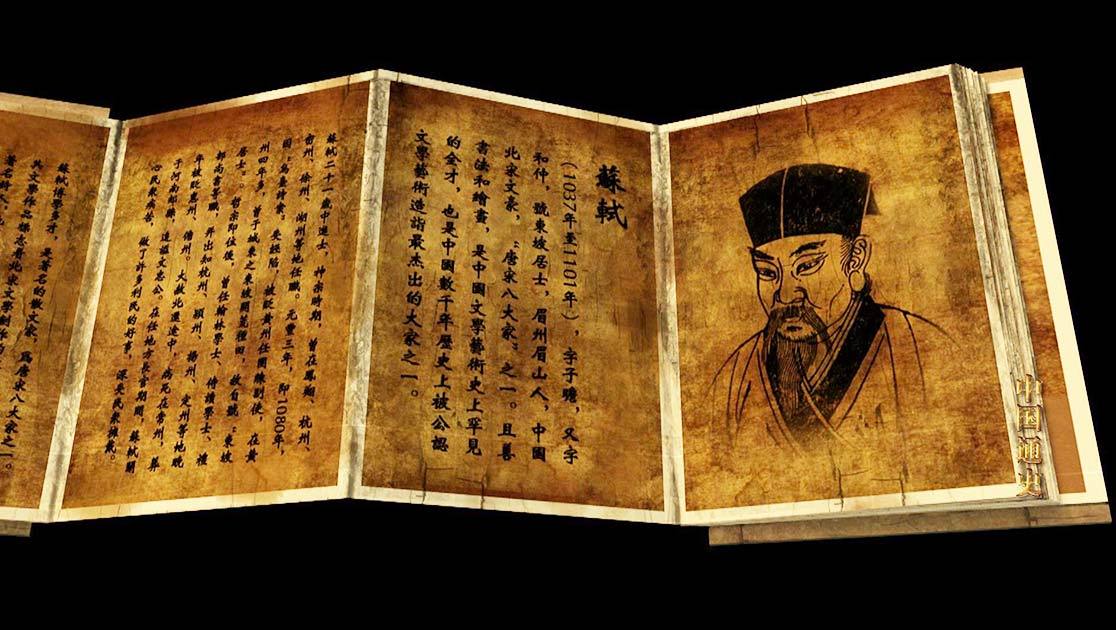 中國通史
蘇軾
（1037年至1101年），字子瞻，又字
和仲，號東坡居士，眉州眉山人，中國
北宋文豪，“唐宋八大家”之一。且善
書法和繪畫，是中國文學藝術史上罕見
的全才，也是中國數千年歷史上被公認
文學藝術造詣最杰出的大家之一。
蘇軾二十一歲中進士，神宗時期，曾在鳳翔、杭州、
密州、徐州、湖州等地任職。元豐三年，即1080年，
因“烏臺詩案”受誣陷，被貶黃州任團練副使，在黃
州四年多，曾于城東之東坡開荒種田，故自號“東坡
居士”。哲宗即位後，曾任翰林學士、侍讀學士、禮
部尚書等職，并出知杭州、潁州、揚州、定州等地晚
年被貶惠州、儋州。大赦北還途中，病死在常州，葬
于河南郟縣，追謚文忠公。在任地方長官期間，蘇軾關
心民衆疾苦，做了許多利民的好事，深受民衆擁戴。
蘇軾博學多才，是著名的散文家，爲唐宋八大家之一。
其文學作品標志着北宋文學創作的
著名詩人